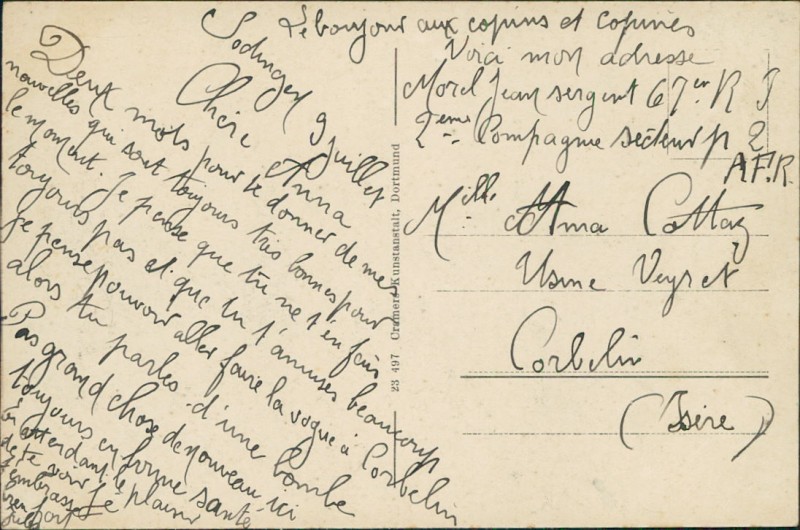 Le bonjour aux copins et copines
Voici mon adresse
Morel Jean sergent 67em R I
2eme Compagnie secteur p 2
A.F.R.
Melle Anna Cottaz
Usine Veyret
Corbelin
(Isère)
Sodingen 9 juillet
Chère Anna
Deux mots pour te donner de mes
nouvelles qui sont toujours très bonnes pour
le moment. Je pense que tu ne t'en fais
toujours pas et que tu t'amuses beaucoup
je pense pouvoir aller faire la vogue à Corbelin
alors tu parles d'une bombe
Pas grand chose de nouveau ici
toujours en forme santé
en attendant le plaisir
de te voir je
t'embrasse
bien fort
23 497 Cramers Kunstanstalt, Dortmund